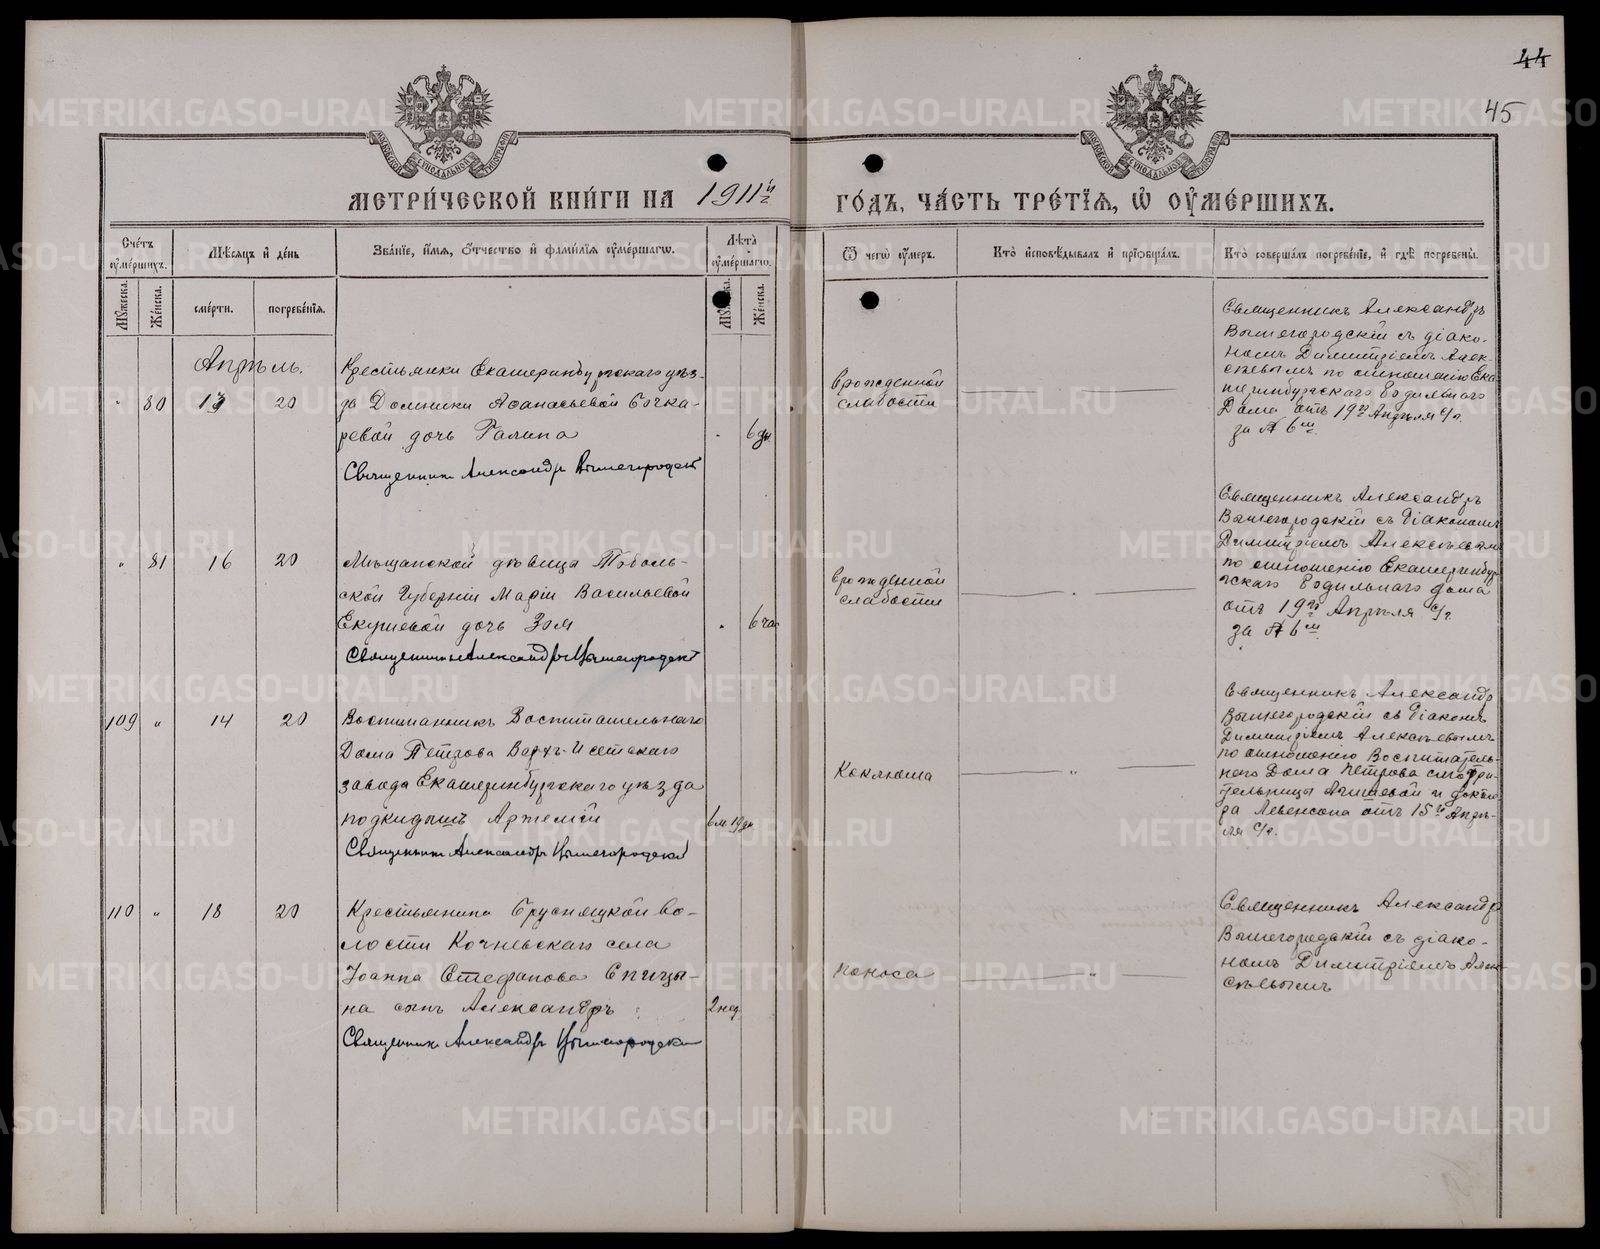 44
45
МЕТРИ́ЧЕСКОЙ КНИ́ГИ НА 1911й
ГО́ДЪ, ЧА́СТЬ ТРЕ́ТЇѦ, Ѡ ОУ҆МЕ́РШИХЪ.
Сче́тъ оу҆ме́ршихъ.
Мѣ́сяцъ и҆ де́нь
Зва́нїе, и҆́мѧ, ѻ҆́тчество и҆ фами́лїѧ оу҆ме́ршагѡ.
Лѣ́та оу҆ме́ршагѡ.
Ѿ чегѡ̀ оу҆́меръ.
Кто̀ и҆сповѣ́дывалъ и҆ прїѡбща́лъ.
Кто̀ соверша́лъ погребе́нїе, и҆ гдѣ̀ погребены̀.
Мꙋ́жеска.
Же́нска.
сме́рти.
погребе́нїя.
Мꙋ́жеска.
Же́нска.
Апрѣль.
" 80 20
Крестьянки Екатеринбургскаго уѣз-
да Домники Аѳанасьевой Бочка-
ревой дочь Галина
" 6 дн
Священникъ Александръ Вышегородскі
Врожденной
слабости
Священникъ Александръ
Вышегородскій съ діако-
номъ Димитріемъ Алек-
сѣевымъ по отношенію Ека-
теринбургскаго Родильнаго
Дома отъ 19го Апрѣля с/г.
за № 6м.
" 81 16 20
Мѣщанской дѣвицы Тоболь-
ской Губерніи Маріи Васильевой
дочь Зоя
" 6 час
Священникъ Александръ Вышегородскі
Врожденной
слабости
Священникъ Александръ
Вышегородскій съ Діакономъ
Димитріемъ Алексѣевымъ
по отношенію Екатеринбур
гскаго Родильнаго дома
отъ 19го Апрѣля с/г.
за № 6м.
109 " 14 20
Воспитанникъ Воспитательнаго
Дома Петрова Верхъ-Исетскаго
завода Екатеринбургскаго уѣзда
подкидышъ Артемій
6м 19дн
Священникъ Александръ Вышегородскі
Коклюша
Священникъ Александръ
Вышегородскій съ Діаконъ
Димитріемъ Алексѣевымъ
по отношенію Воспитатель-
наго Дома Петрова смотри-
тельницы и доктo
ра Левенсона отъ 15го Апрѣ-
ля с/г.
110 " 18 20
Крестьянина Бруснятской во-
лости Кочневскаго села
Іоанна Стефанова Спицы-
на сынъ Александръ
2 нед.
Священникъ Александръ Вышегородскі
Поноса
Священникъ Александръ
Вышегородскій съ діако-
номъ Димитріемъ Алек-
сѣевымъ
METRIKI.GASO-URAL.RU